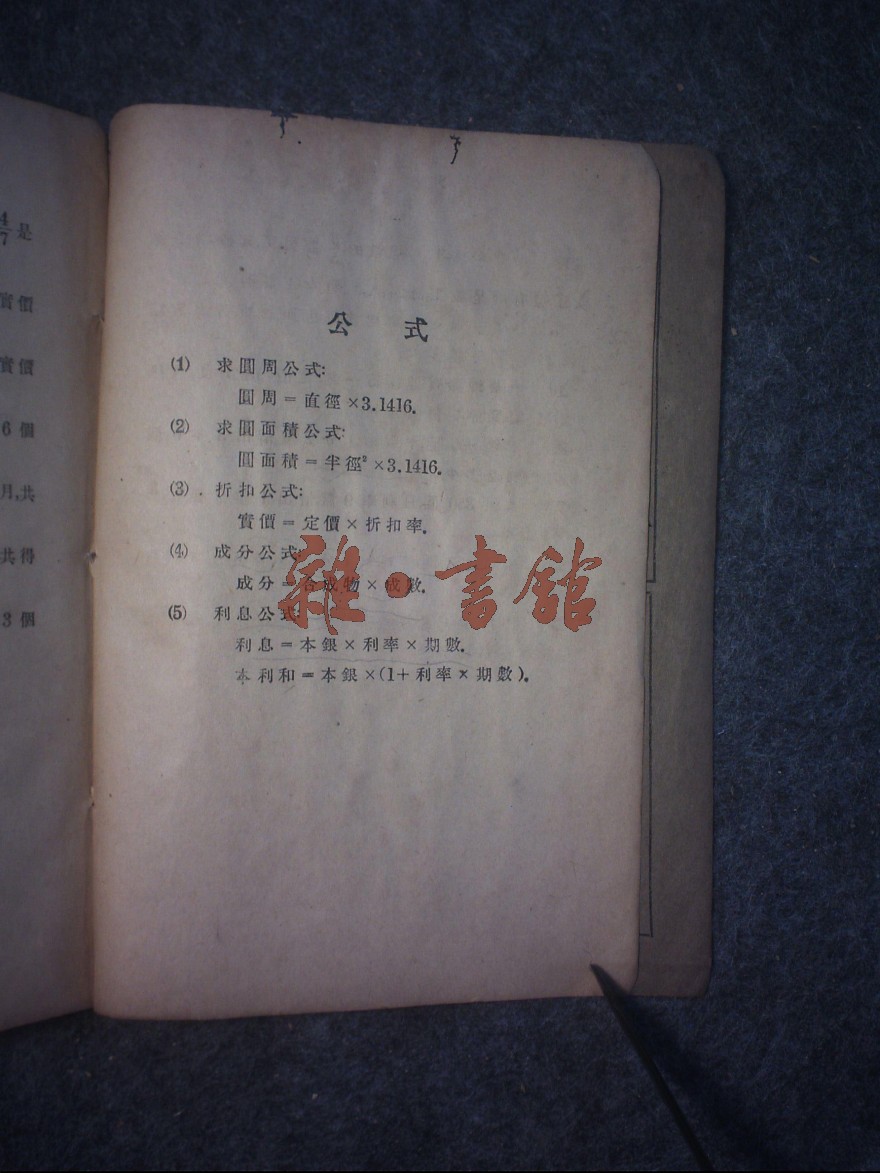 4/7是
實價
實價
6個
月,共
共得
3個
公 式
(1) 求圓周公式:
圓周=直徑×3.1416.
(2) 求圓面積公式:
圓面積=半徑²×3.1416.
(3) 折扣公式:
實價=定價×折扣率.
(4) 成分公式:
成分=合成物×成數.
(5) 利息公式:
利息=本銀×利率×期數.
本利和=本銀×(1+利率×期數).
雜·書館